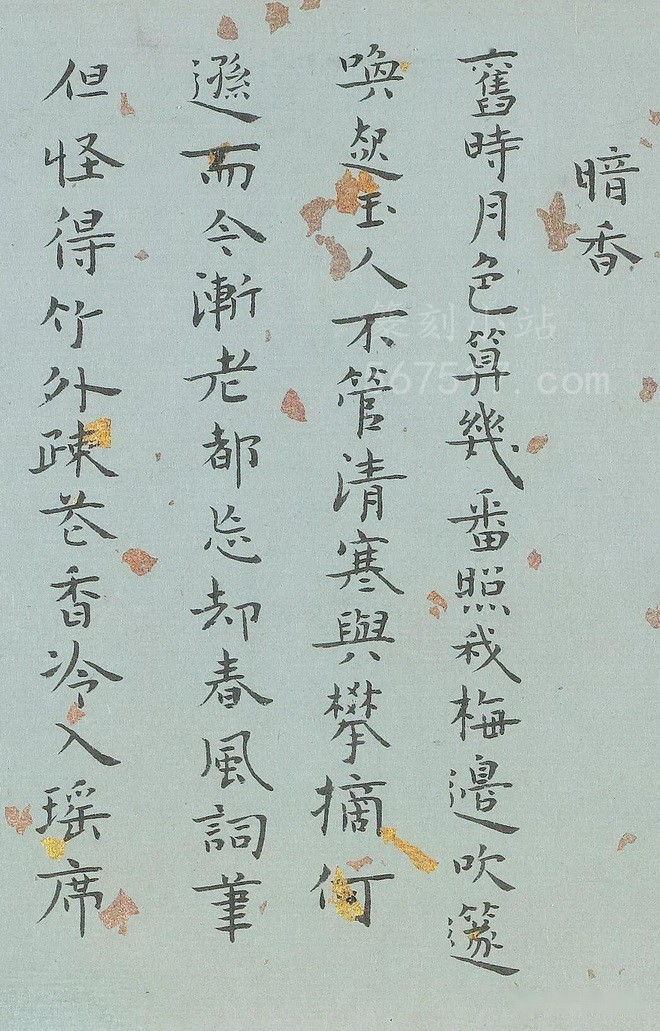 暗香
舊時月色算幾番照我梅邊吹篴
喚起玉人不管清寒與攀摘何
遜而今漸老都忘却春風詞筆
但怪得竹外疎花香冷入瑤席
篆刻小站
.com